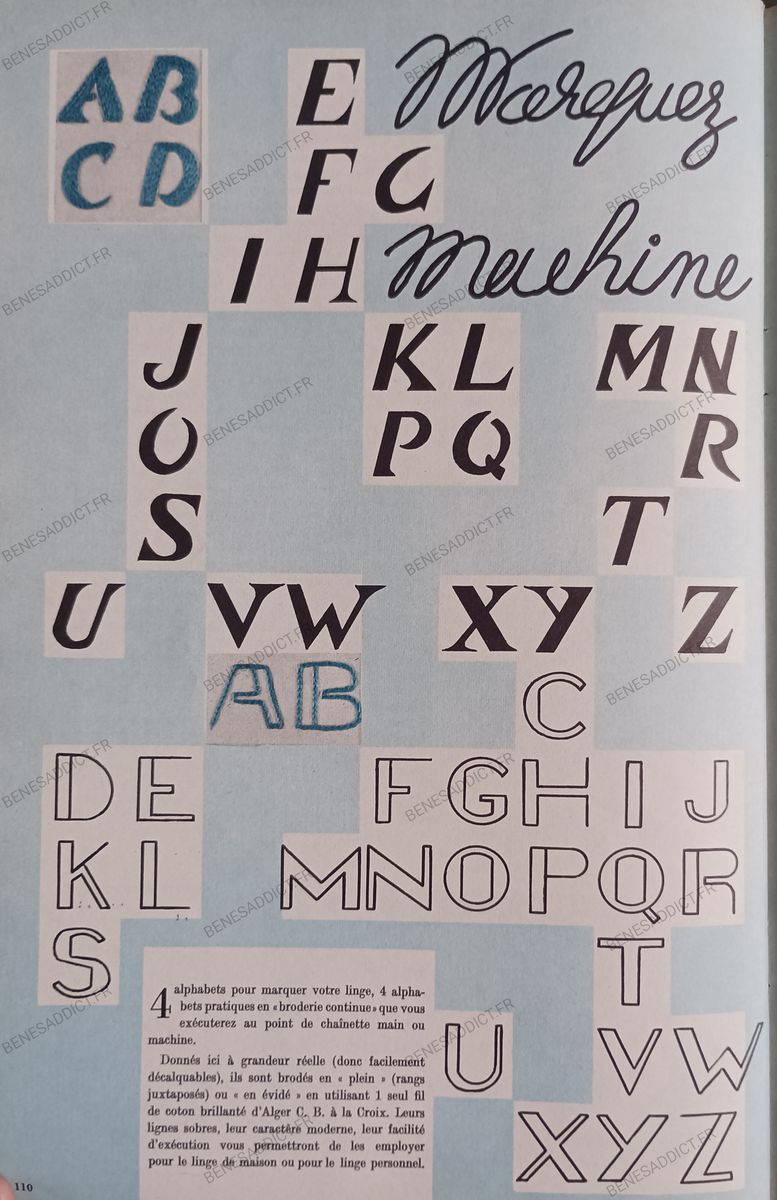 A B E Marquez
C D F G
I H Machine
J K L M N
O P Q R
S T
U V W X Y Z
A B C
D E F G H I J
K L M N O P Q R
S T
4 alphabets pour marquer votre linge, 4 alpha-
bets pratiques en « broderie continue » que vous
exécuterez au point de chaînette main ou
machine.
Donnés ici à grandeur réelle (donc facilement
décalquables), ils sont brodés en « plein » (rangs
juxtaposés) ou « en évidé » en utilisant 1 seul fil
de coton brillanté d'Alger C. B. à la Croix. Leurs
lignes sobres, leur caractère moderne, leur facilité
d'exécution vous permettront de les employer
pour le linge de maison ou pour le linge personnel.
U V W
X Y Z
110
BENESADDICT.FR